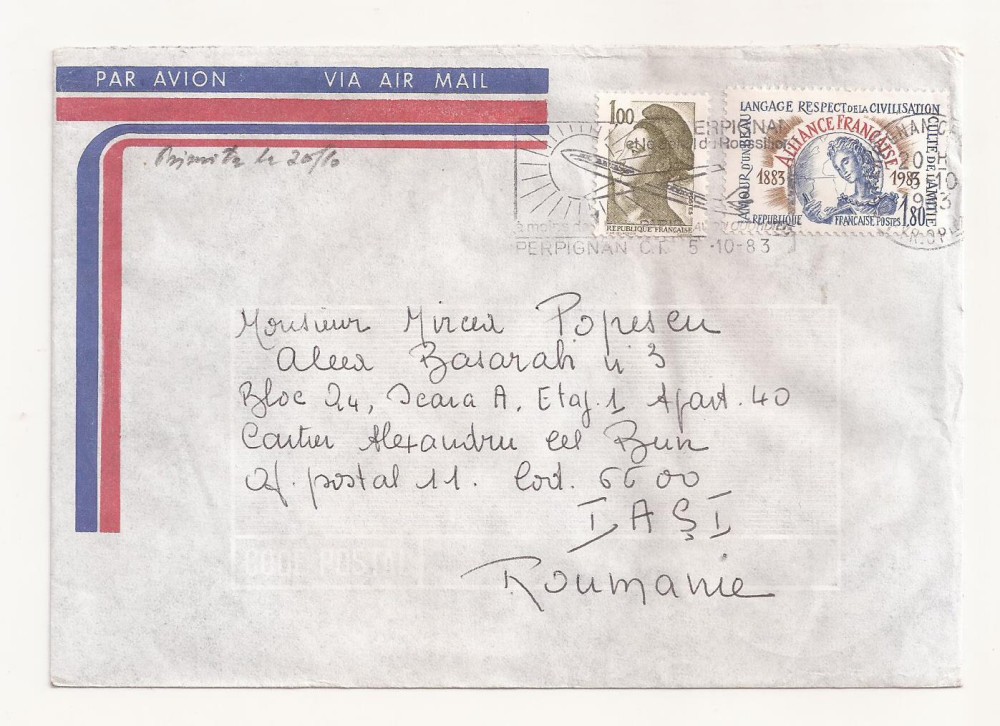 PAR AVION VIA AIR MAIL
Primita le 20/10
1,00
RÉPUBLIQUE FRANÇAISE
POSTES
LANGAGE RESPECT DE LA CIVILISATION
AMOUR D'UN BEAU
CULTE DE L'AMITIÉ
ALLIANCE FRANÇAISE
1883 1983
RÉPUBLIQUE FRANÇAISE POSTES 1,80
PERPIGNAN
et le Roussillon
à moins de
PERPIGNAN C.T. 5-10-83
20 H
10
1983
Monsieur Mircea Popescu
Aleea Basarabi n 3
Bloc 24, Scara A, Etaj.1 Apart. 40
Cartier Alexandru cel Bun
Of. postal 11. Cod. 6600
IAŞI
Roumanie
CODE POSTAL